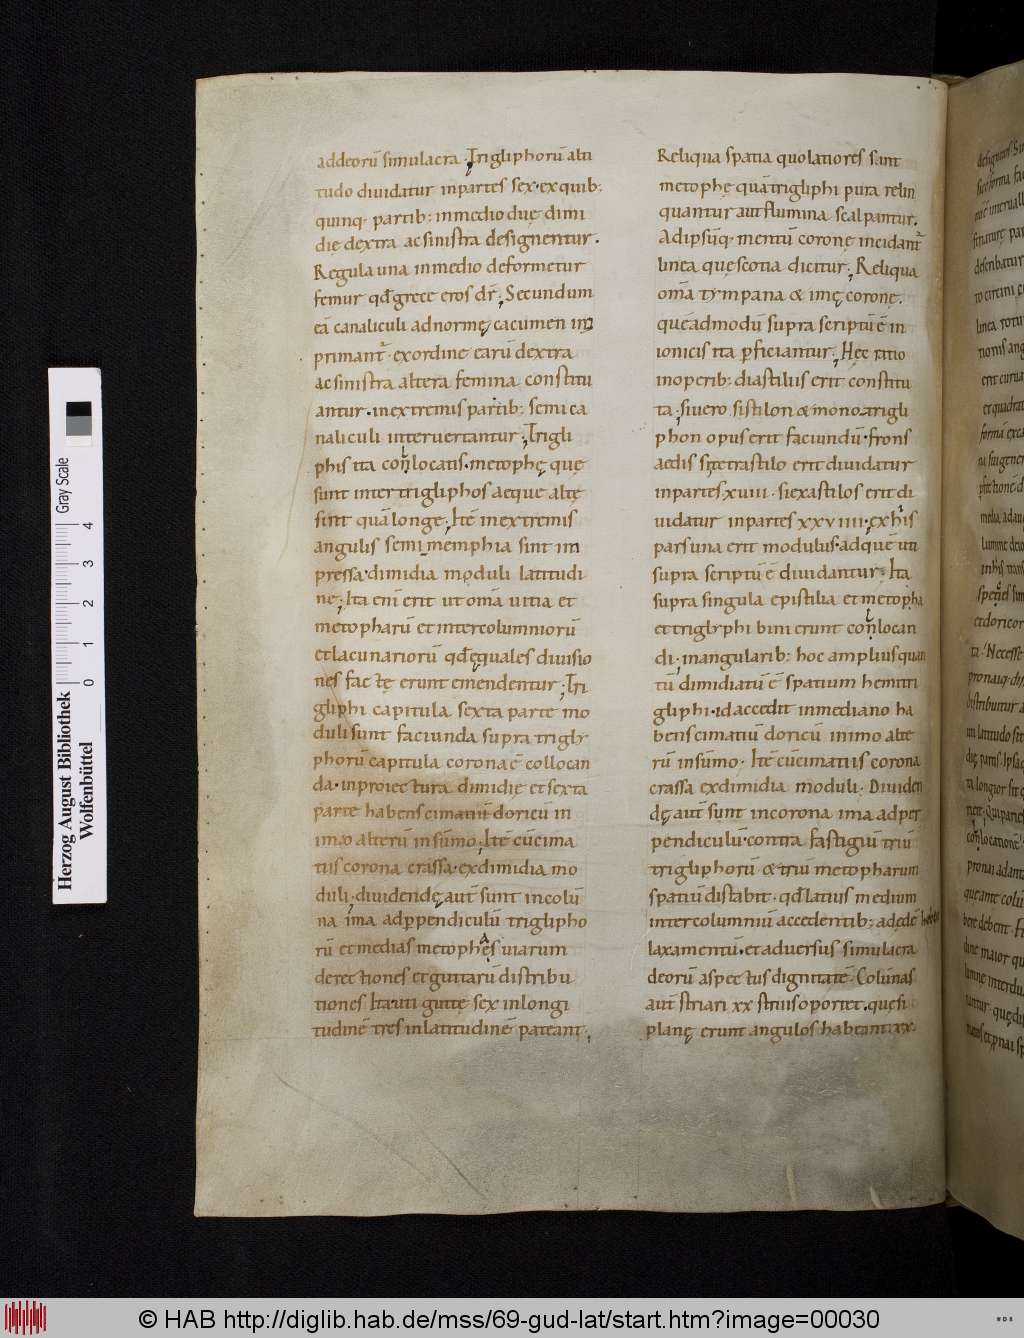 addeorū simulacra. Trigliphorū alti
tudo diuidatur inpartes sex. ex quib;
quinq. partib; inmedio duę dimi
dię dextra ac sinistra designentur.
Regula una inmedio deformetur
femur qđ grece eros dr̄; Secundum
eā canaliculi adnormę cacumen im
primant̃. exordine earū dextra
ac sinistra altera femina constitu
antur. inextremis partib; semica
naliculi interuertantur; Trigli
phis ita conlocatis. metophę quę
sunt inter trigliphos aeque altę
sint quā longe; Itē inextremis
angulis semimemphia sint im
pressa. dimidia moduli latitudi
ne; Ita enī erit ut om̄a uitia et
metopharū et intercolumniorū
et lacunariorū qđ ęquales diuisio
nes factę erunt emendentur; Tri
gliphi capitula sexta parte mo
duli sunt faciunda supra trigly
phorū capitula corona ē collocan
da. inproiectura dimidię et sexta
parte habens cimatiū doricū in
imo alterū insūmo; Itē cū cima
tiis corona crassa. exdimidia mo
duli; diuidendę aut̄ sunt incolū
na ima adp̱pendiculū triglipho
rū et medias metophes uiarum
derectiones et guttarū distribu
tiones Ita uti guttę sex inlongi
tudinē tres inlatitudinē pateant;
Reliqua spatia quo latiores sunt
metophę quā trigliphi pura relin
quantur aut flumina scalpantur.
Adipsūq. mentū coronę incidant̃
linea quę scotia dicitur; Reliqua
om̄a tympana & imę coronę.
quēadmodū supra scriptū ē in
ionicis ita ꝑficiantur; Hęc ratio
inoperib; diastiliis erit constitu
ta. si uero sistilon & monotrigli
phon opus erit faciundū. frons
aedis si tetrastilo erit diuidatur
inpartes xviiii. si exastilos erit di
uidatur inpartes xxviiii. ex his
pars una erit modulus. adquē uti
supra scriptū ē diuidantur; Ita
supra singula epistilia et metopha
et triglyphi bini erunt conlocan
di; inangularib; hoc amplius quan
tū dimidiatū ē spatium hemitri
gliphi. id accedit inmediano ha
bens cimatiū doricū inimo alte
rū insūmo; Itē cū cimatiis corona
crassa exdimidia moduli. Diuiden
dę aut̄ sunt incorona ima adper
pendiculū. contra fastigiū triū
trigliphorū & triū metopharum
spatiū distabit. qđ latius medium
intercolumniū accedentib; adędē habet
laxamentū. et aduersus simulacra
deorū aspectus dignitatē. Colūnas
aut̄ striari xx striis oportet. quę si
planę erunt angulos habeant xx
Herzog August Bibliothek
Wolfenbüttel
0 1 2 3 4
Gray Scale
© HAB http://diglib.hab.de/mss/69-gud-lat/start.htm?image=00030